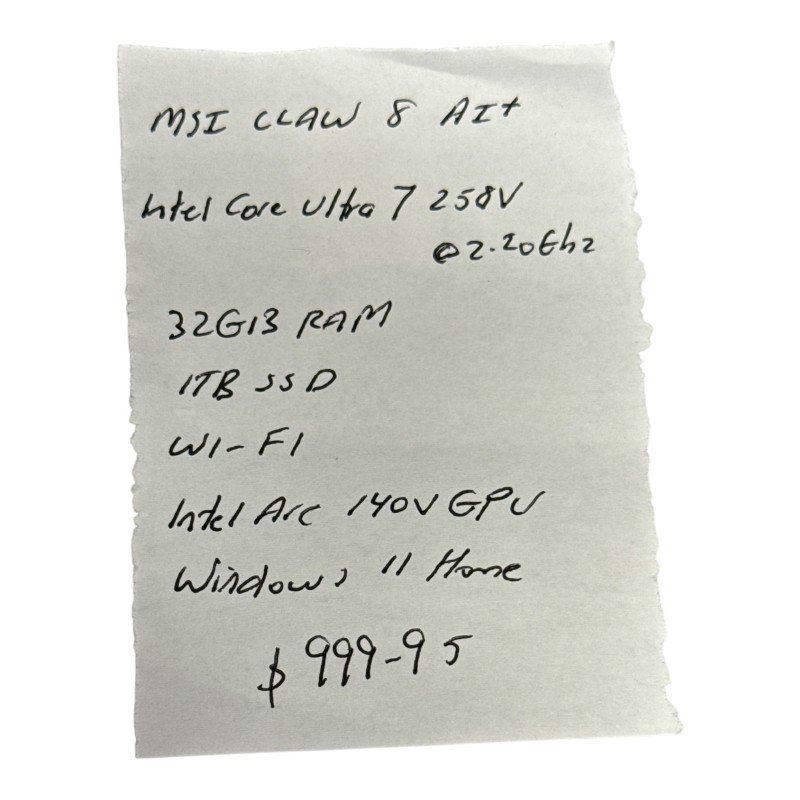 MSI CLAW 8 AI+
Intel Core Ultra 7 258V
@2.20Ghz
32GB RAM
1TB SSD
WI-FI
Intel Arc 140V GPU
Windows 11 Home
$999-95